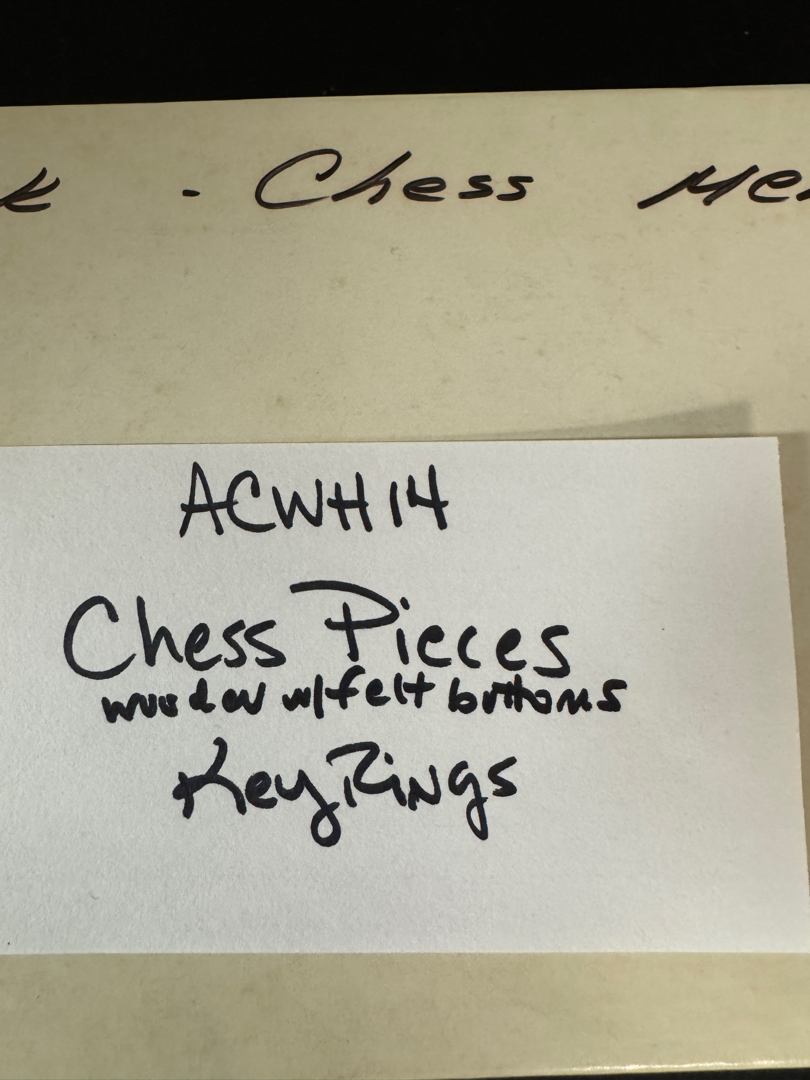 k - Chess Me
ACWH14
Chess Pieces
wooden w/felt bottoms
Key Rings